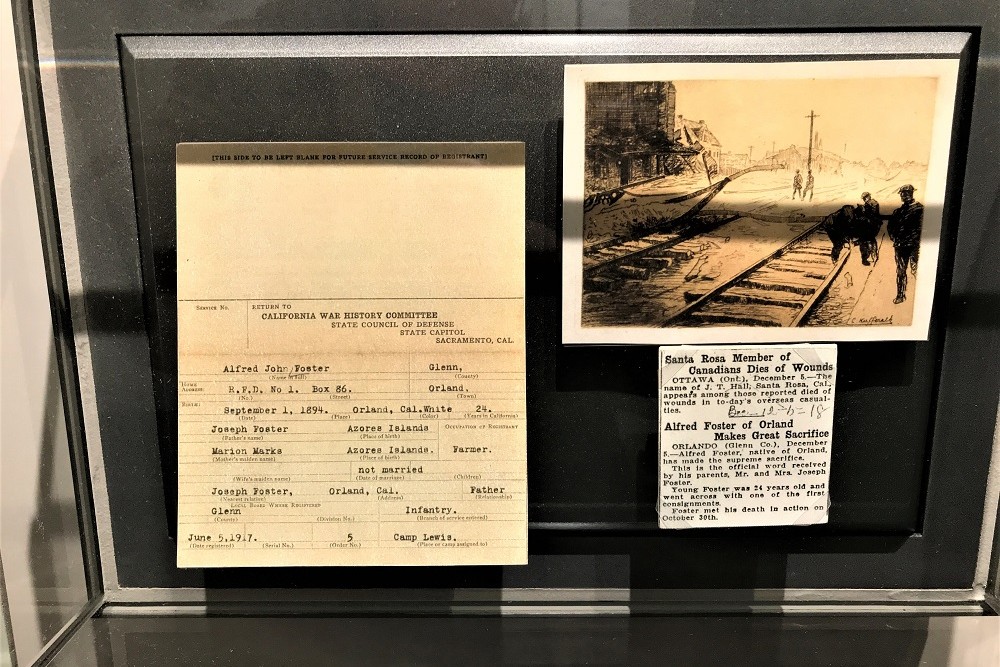 (THIS SIDE TO BE LEFT BLANK FOR FUTURE SERVICE RECORD OF REGISTRANT)
Service No.
RETURN TO
CALIFORNIA WAR HISTORY COMMITTEE
STATE COUNCIL OF DEFENSE
STATE CAPITOL
SACRAMENTO, CAL.
Alfred John Foster Glenn,
(Name in full) (County)
Home Address: R.F.D. No 1. Box 86. Orland.
(No.) (Street) (Town)
Birth: September 1, 1894. Orland, Cal. White 24.
(Date) (Place) (Color) (Years in California)
Joseph Foster Azores Islands OCCUPATION OF REGISTRANT
(Father's name) (Place of birth)
Marion Marks Azores Islands. Farmer.
(Mother's maiden name) (Place of birth)
not married
(Wife's maiden name) (Date of marriage) (Children)
Joseph Foster, Orland, Cal. Father
(Nearest relative) (Address) (Relationship)
LOCAL BOARD WHERE REGISTERED
Glenn Infantry.
(County) (Division No.) (Branch of service entered)
June 5,1917. 5 Camp Lewis.
(Date registered) (Serial No.) (Order No.) (Place or camp assigned to)
Santa Rosa Member of
Canadians Dies of Wounds
OTTAWA (Ont.), December 5.—The
name of J. T. Hall, Santa Rosa, Cal.,
appears among those reported died of
wounds in to-day's overseas casual-
ties.
Alfred Foster of Orland
Makes Great Sacrifice
ORLANDO (Glenn Co.), December
5.—Alfred Foster, native of Orland,
has made the supreme sacrifice.
This is the official word received
by his parents, Mr. and Mrs. Joseph
Foster.
Young Foster was 24 years old and
went across with one of the first
consignments.
Foster met his death in action on
October 30th.